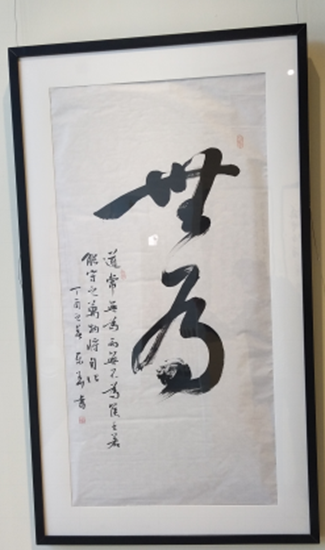 無為
道常無為而無不為侯王若
能守之萬物將自化
丁酉之春書